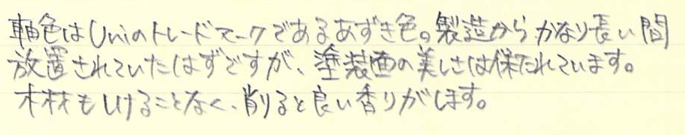 軸色はUniのトレードマークであるあずき色。製造からかなり長い間
放置されていたはずですが、塗装面の美しさは保たれています。
木材もしけることなく、削ると良い香りがします。